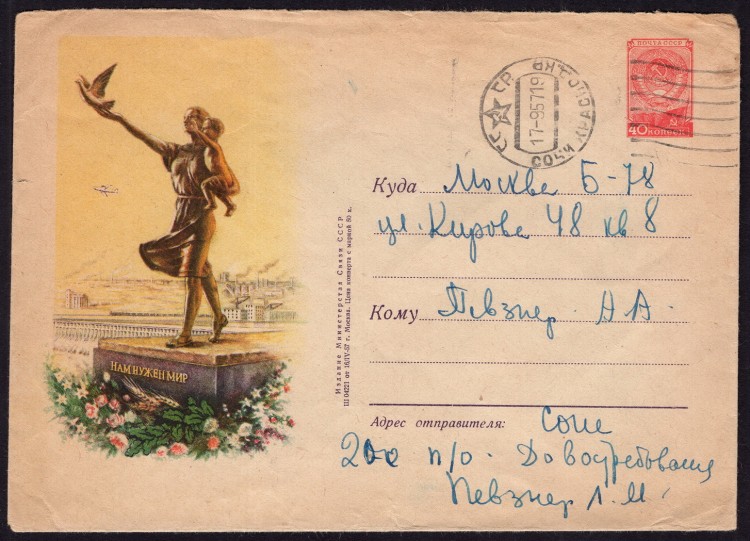 ПОЧТА СССР
40 КОПЕЕК
СССР
17-9 57 19
СОЧИ КРАСНОДАР
Куда Москва Б-78
ул. Кирова 48 кв 8
Кому Певзнер А А.
НАМ НУЖЕН МИР
Издание Министерства Связи СССР
Ш 04221 от 16/IV-57 г. Москва. Цена конверта с маркой 50 к.
Адрес отправителя: Сочи
п/о. До востребования
Певзнер Л. И.